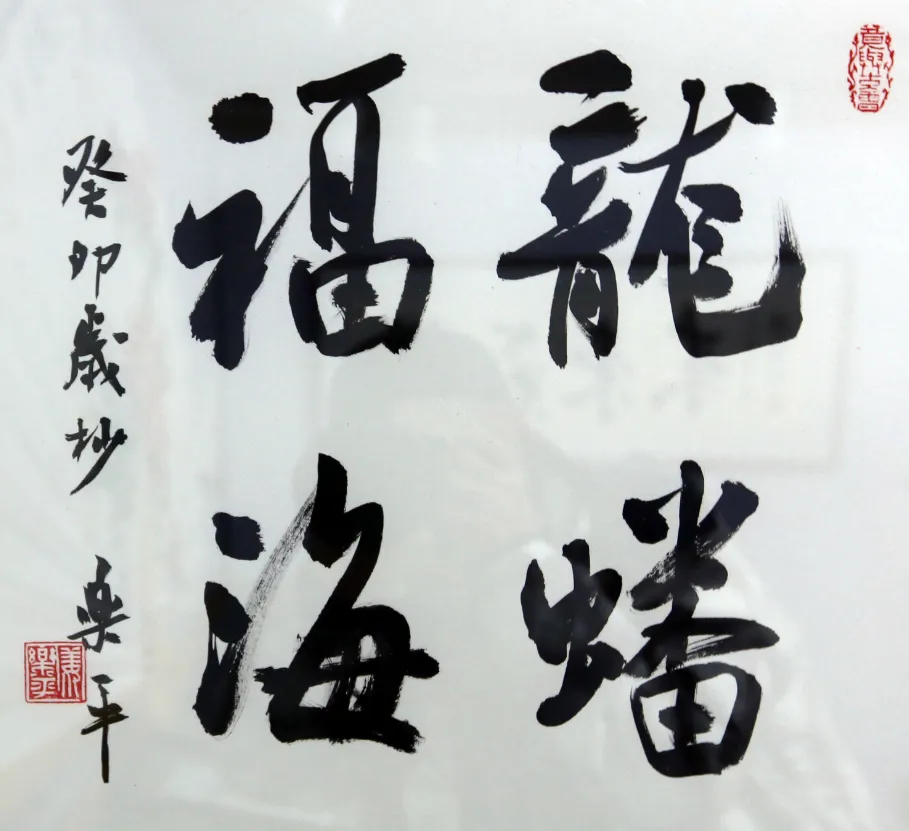 龍蟠
福海
癸卯歲杪 樂平